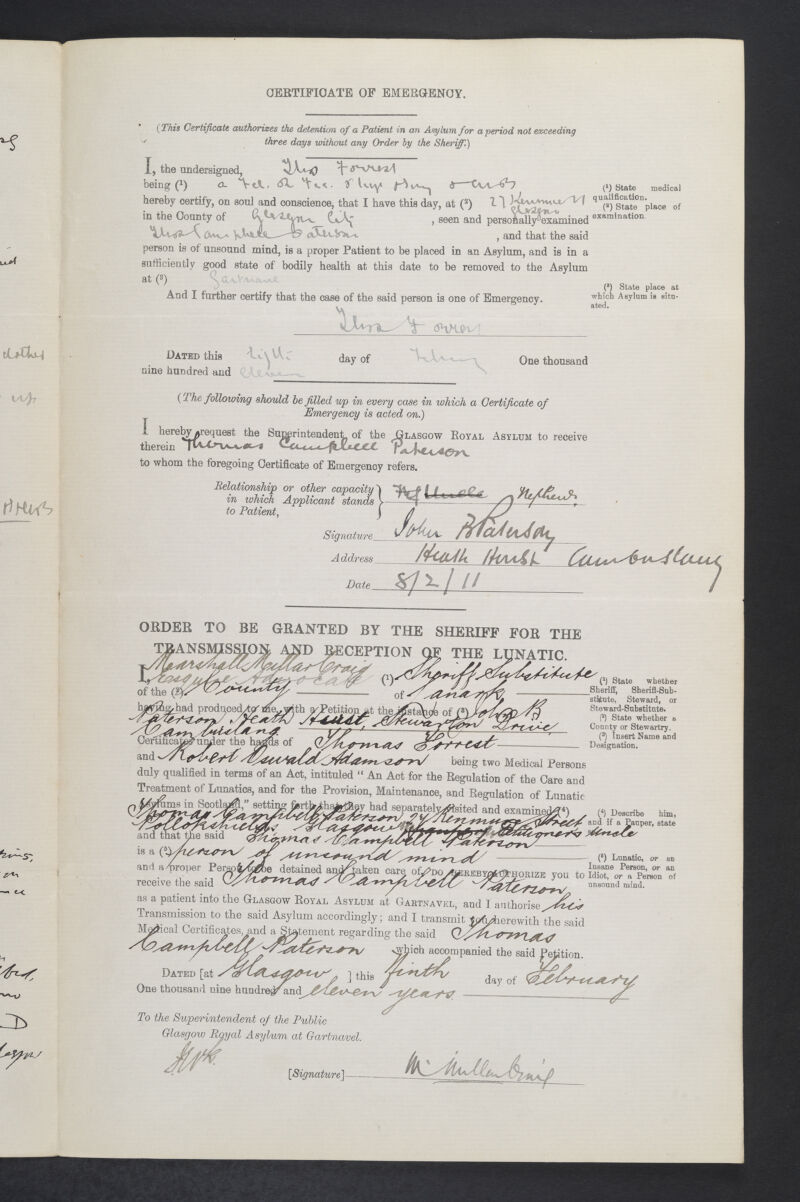 CERTIFICATE OF EMERGENCY.
(This Certificate authorizes the detention of a Patient in an Asylum for a period not exceeding
three days without any Order by the Sheriff.)
I, the undersigned, Thos Forrest
being (1) a
hereby certify, on soul and conscience, that I have this day, at (2) 27 Kenmure St
Glasgow
in the County of Glasgow City , seen and personally examined
Thos Campbell Paterson , and that the said
person is of unsound mind, is a proper Patient to be placed in an Asylum, and is in a
sufficiently good state of bodily health at this date to be removed to the Asylum
at (3) Gartnavel
And I further certify that the case of the said person is one of Emergency.
Thos Forrest
DATED this eighth day of Feby One thousand
nine hundred and eleven
(1) State medical
qualification.
(2) State place of
examination.
(3) State place at
which Asylum is situ-
ated.
(The following should be filled up in every case in which a Certificate of
Emergency is acted on.)
I hereby request the Superintendent of the GLASGOW ROYAL ASYLUM to receive
therein Thomas Campbell Paterson
to whom the foregoing Certificate of Emergency refers.
Relationship or other capacity
in which Applicant stands
to Patient, Uncle Nephew
Signature John B Paterson
Address Heath Hurst Cambuslang
Date 8/2/11
ORDER TO BE GRANTED BY THE SHERIFF FOR THE
TRANSMISSION AND RECEPTION OF THE LUNATIC.
I, Marshall Millar Craig
Esquire Advocate (1) Sheriff Substitute
of the (2) County of Lanark
having had produced to me, with a Petition at the instance of (3) John B
Paterson Heath Hurst, Stewarton Drive
Cambuslang
Certificates under the hands of Thomas Forrest
and Robert Oswald Adamson being two Medical Persons
duly qualified in terms of an Act, intituled "An Act for the Regulation of the Care and
Treatment of Lunatics, and for the Provision, Maintenance, and Regulation of Lunatic
Asylums in Scotland," setting forth that they had separately visited and examined (4)
Thomas Campbell Paterson 27 Kenmure Street
Pollokshields Glasgow Petitioners uncle
and that the said Thomas Campbell Paterson
is a (5) person of unsound mind
and a proper Person to be detained and taken care of, DO HEREBY AUTHORIZE you to
receive the said Thomas Campbell Paterson
as a patient into the GLASGOW ROYAL ASYLUM AT GARTNAVEL, and I authorise his
Transmission to the said Asylum accordingly; and I transmit you herewith the said
Medical Certificates, and a Statement regarding the said Thomas
Campbell Paterson which accompanied the said Petition.
DATED [at Glasgow ] this tenth day of February
One thousand nine hundred and eleven years.
(1) State whether
Sheriff, Sheriff-Sub-
stitute, Steward, or
Steward-Substitute.
(2) State whether a
County or Stewartry.
(3) Insert Name and
Designation.
(4) Describe him,
and if a Pauper, state
so.
(5) Lunatic, or an
Insane Person, or an
Idiot, or a Person of
unsound mind.
To the Superintendent of the Public
Glasgow Royal Asylum at Gartnavel.
[Signature] M Millar Craig